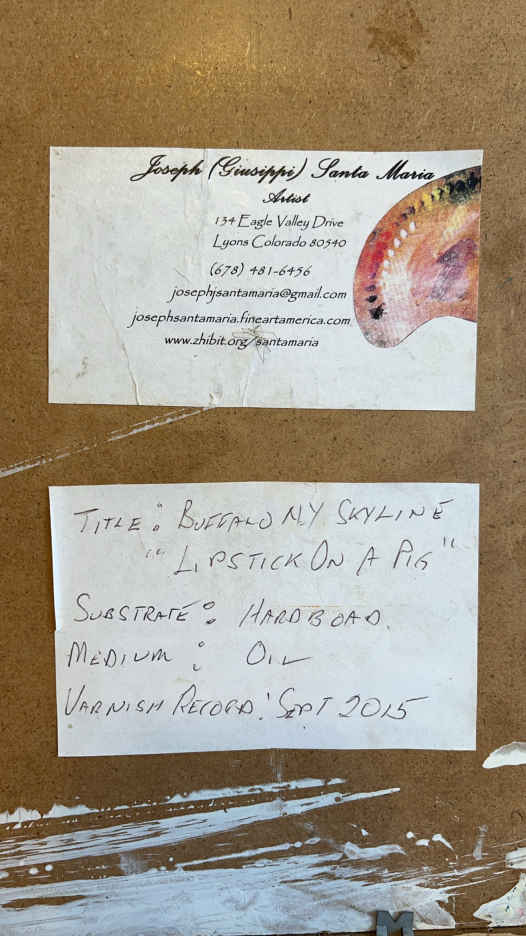 Joseph (Giusippi) Santa Maria
Artist
134 Eagle Valley Drive
Lyons Colorado 80540
(678) 481-6456
josephjsantamaria@gmail.com
josephsantamaria.fineartamerica.com
www.zhibit.org/santamaria
TITLE: BUFFALO NY SKYLINE
"LIPSTICK ON A PIG"
SUBSTRATE: HARDBOAD.
MEDIUM: OIL
VARNISH RECORD: SEPT 2015
M